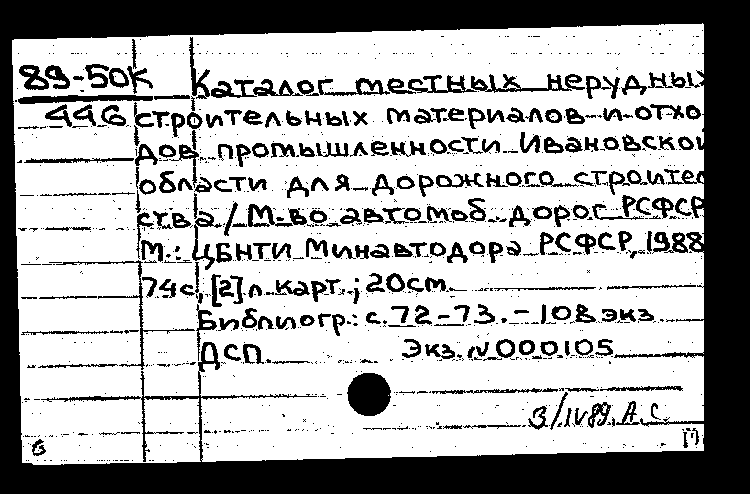 89-50К
446
Каталог местных нерудных
строительных материалов и отхо
дов промышленности Ивановской
области для дорожного строитель
ства / М-во автомоб. дорог РСФСР
М.: ЦБНТИ Минавтодора РСФСР, 1988
74с, [2] л. карт.; 20см.
Библиогр.: с. 72-73. - 108 экз
ДСП. Экз. №000105
3/IV89. А.С.